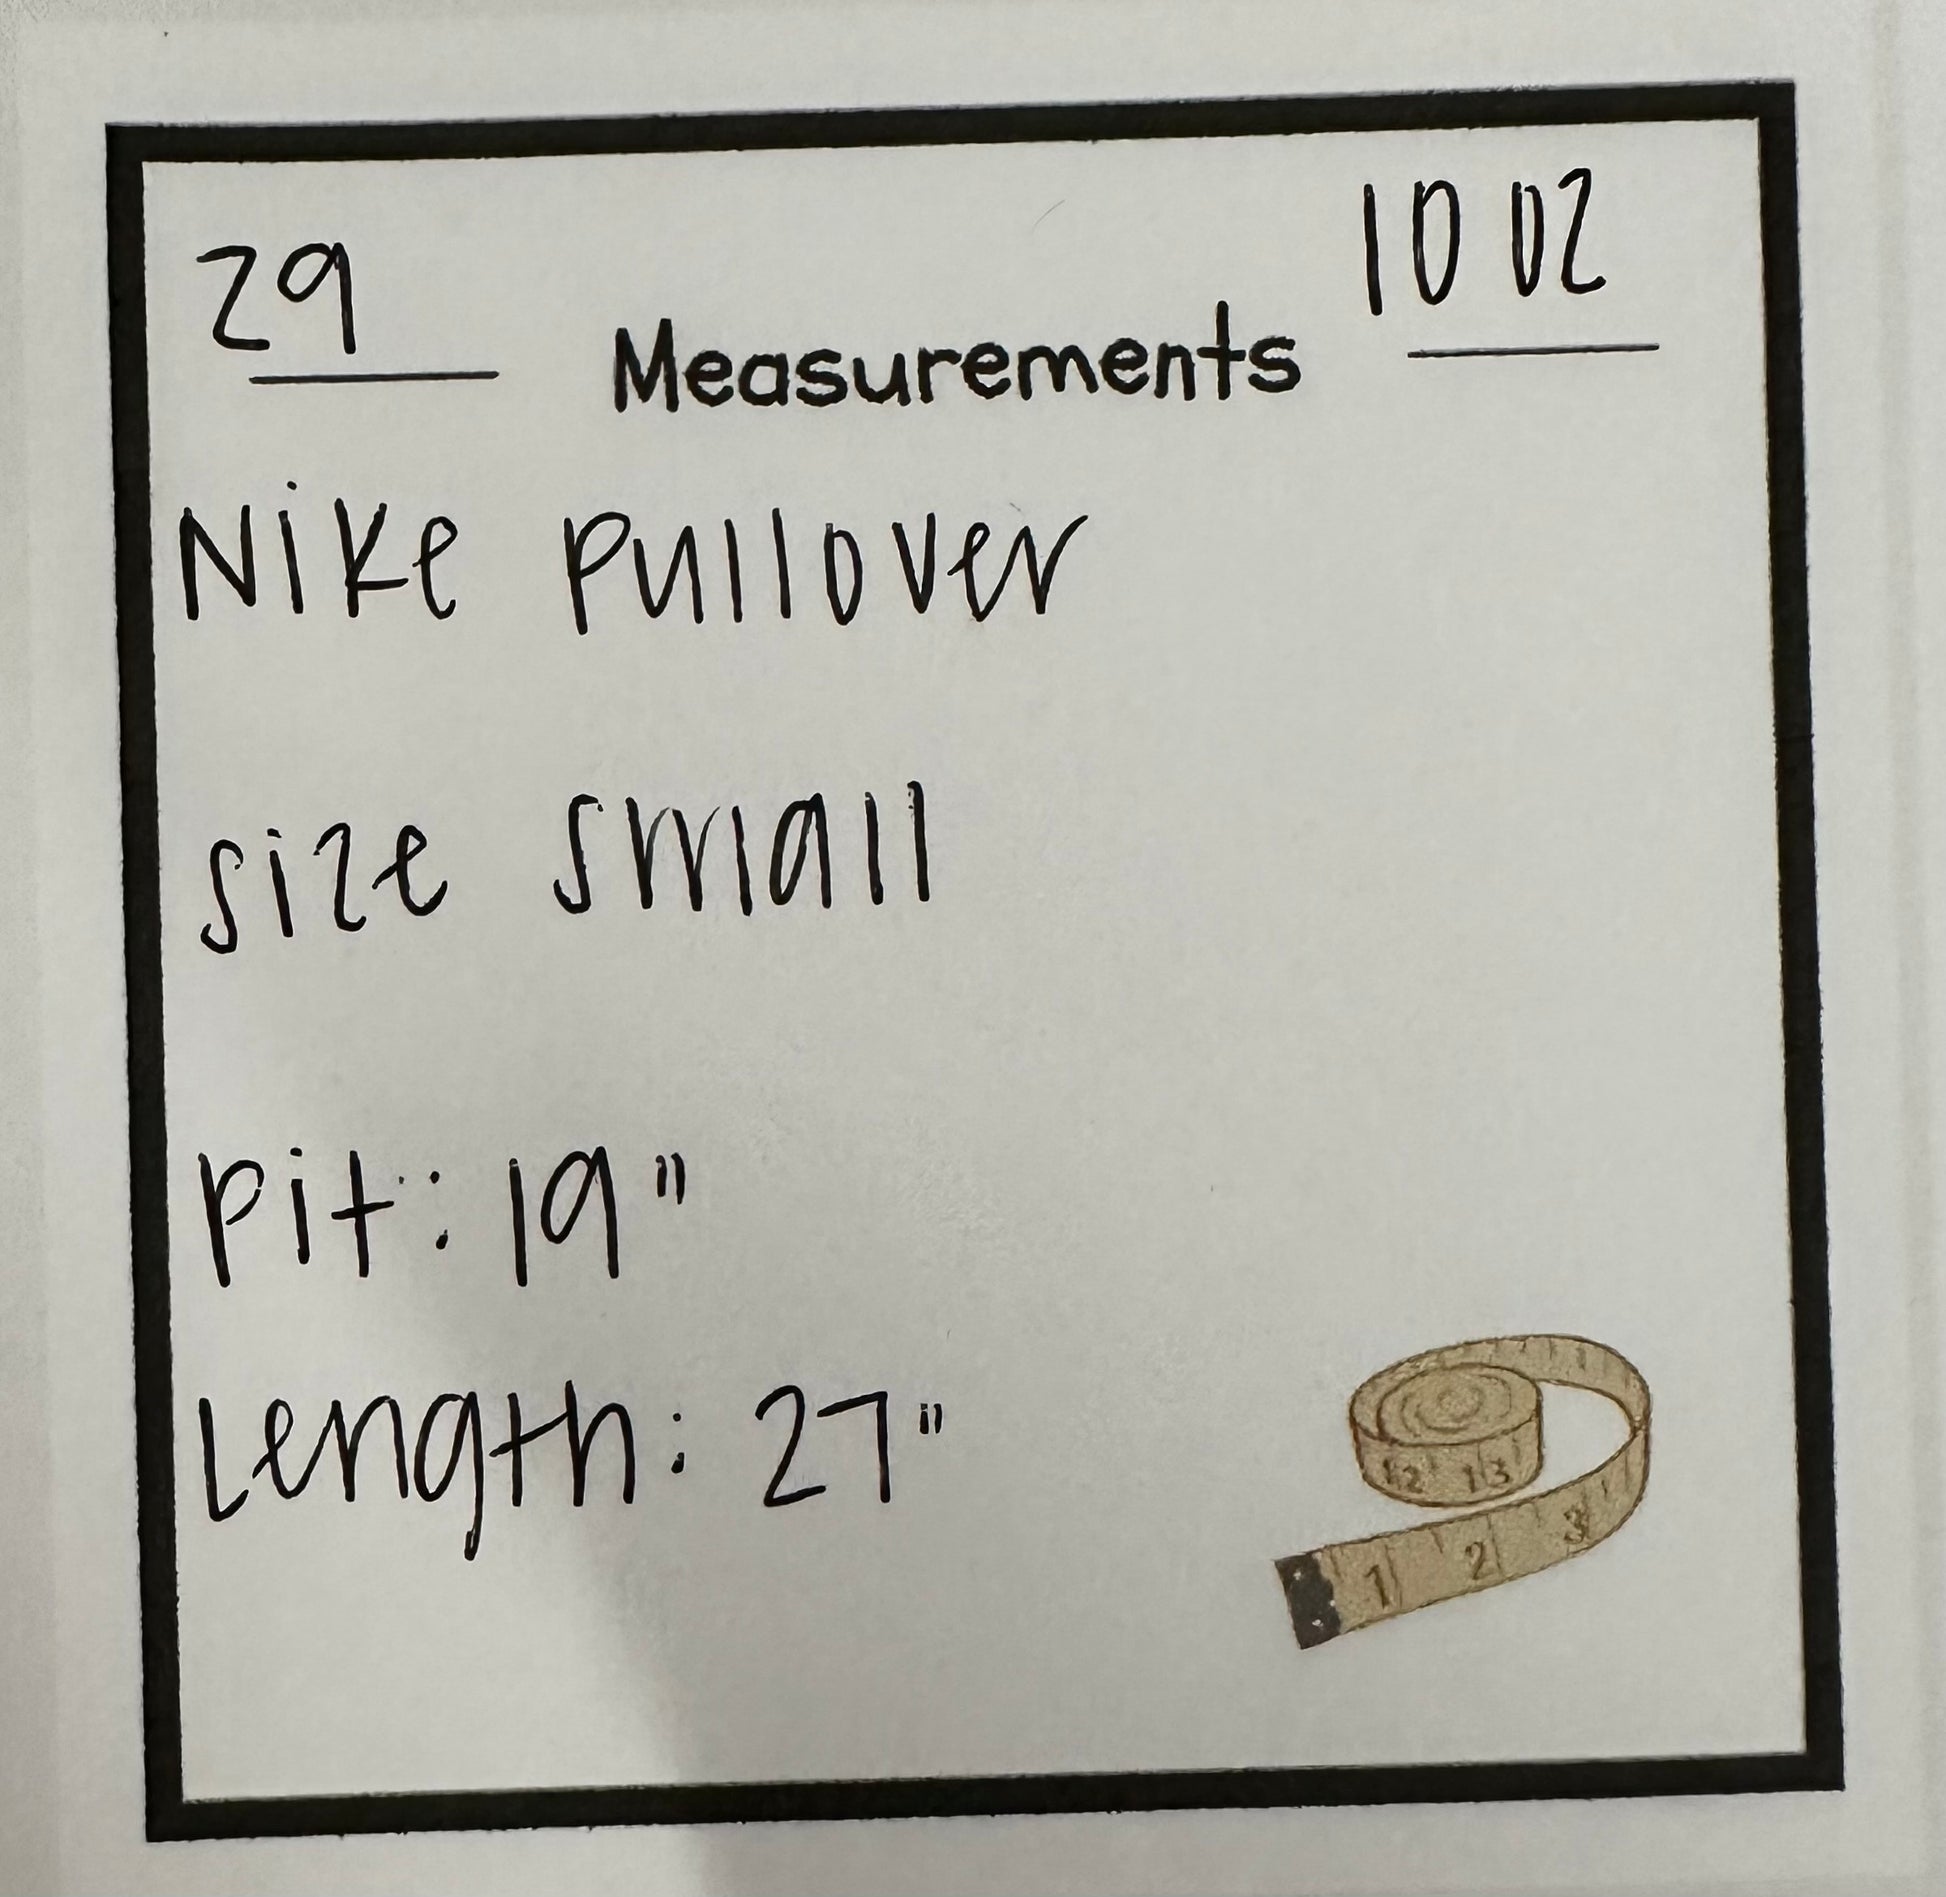 29
10 oz
Measurements
Nike Pullover
size small
Pit: 19"
Length: 27"
12 13
1 2 3